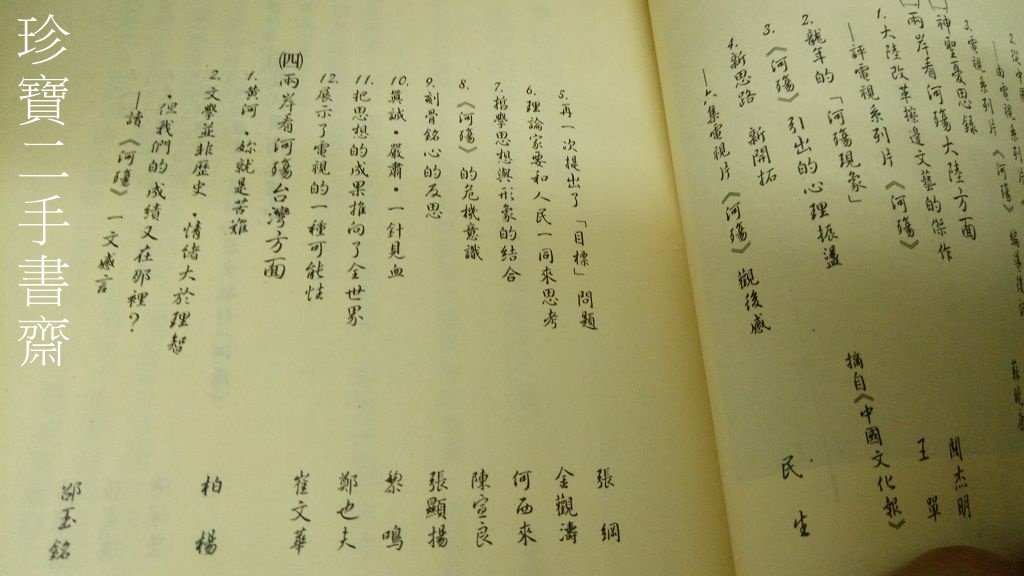 神聖憂思錄
兩岸看河殤大陸方面
1. 大陸改革擦邊文藝的傑作
—評電視系列片《河殤》
聞杰明
2. 龍年的「河殤現象」
王單
3. 《河殤》引出的心理振盪
摘自《中國文化報》
4. 新思路 新開拓
—六集電視片《河殤》觀後感
民生
5. 再一次提出了「目標」問題 張綱
6. 理論家要和人民一同來思考 金觀濤
7. 哲學思想與形象的結合 何西來
8. 《河殤》的危機意識 陳宣良
9. 刻骨銘心的反思 張顯揚
10. 眞誠・嚴肅・一針見血 黎鳴
11. 把思想的成果推向了全世界 鄭也夫
12. 展示了電視的一種可能性 崔文華
㈣兩岸看河殤台灣方面
1. 黃河・妳就是苦难 柏楊
2. 文學並非歷史・情緒大於理智
・但我們的成績又在那裡？
—讀《河殤》一文感言 邵玉銘
珍寶二手書齋